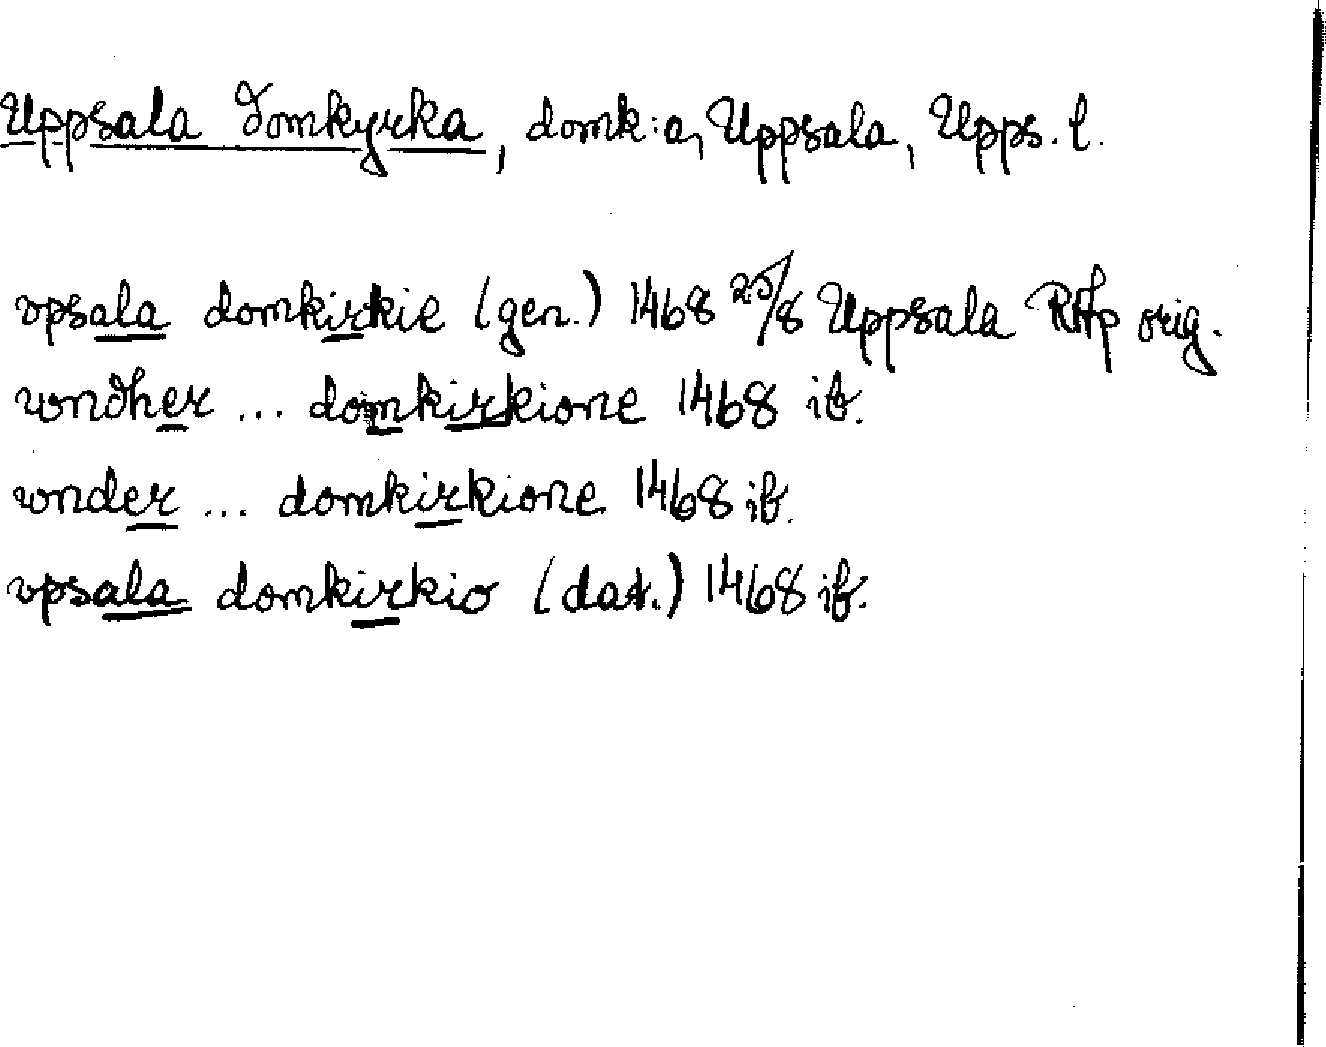 Uppsala Domkyrka, domk:a, Uppsala, Upps. l.
vpsala domkirkie (gen.) 1468 25/8 Uppsala RAp orig.
vondher ... domkirkione 1468 ib.
vonder ... domkirkione 1468 ib.
vpsala domkirkio (dat.) 1468 ib.